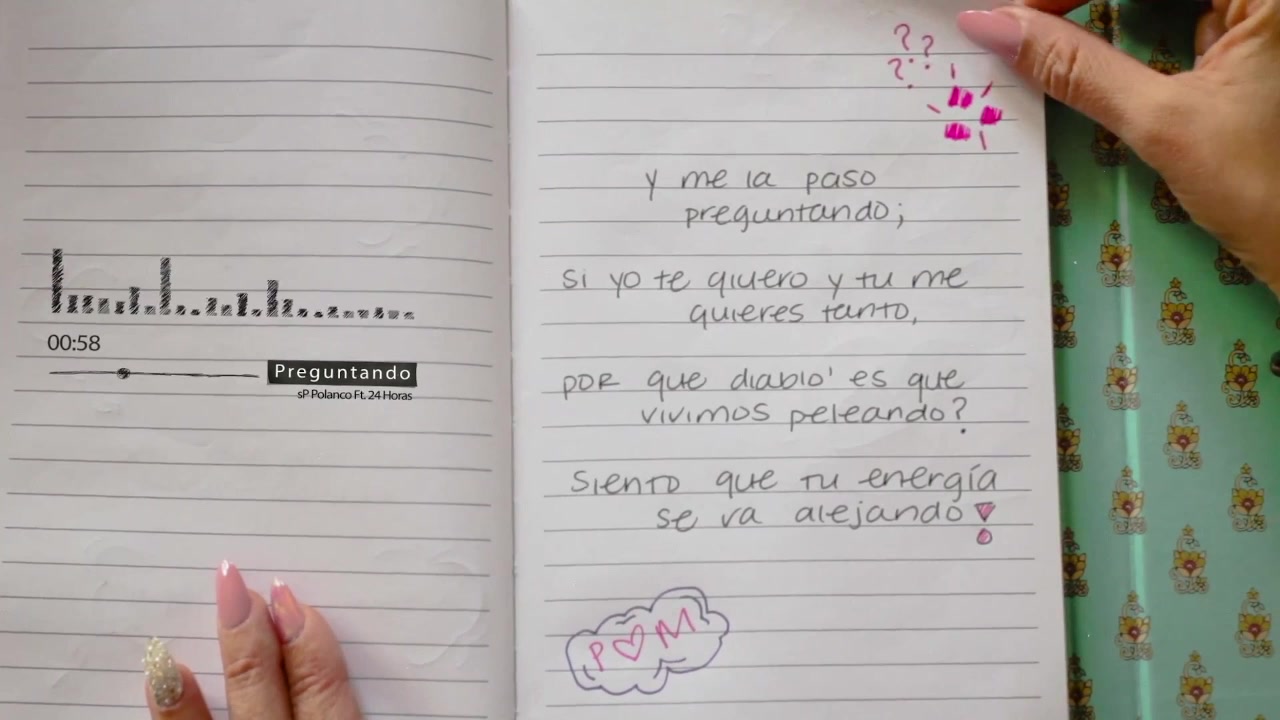 00:58
Preguntando
sP Polanco Ft. 24 Horas
? ?
?
y me la paso
preguntando;
si yo te qiuero y tu me
quieres tanto,
por que diablo' es que
vivimos peleando?
siento que tu energía
se va alejando!
P♡M